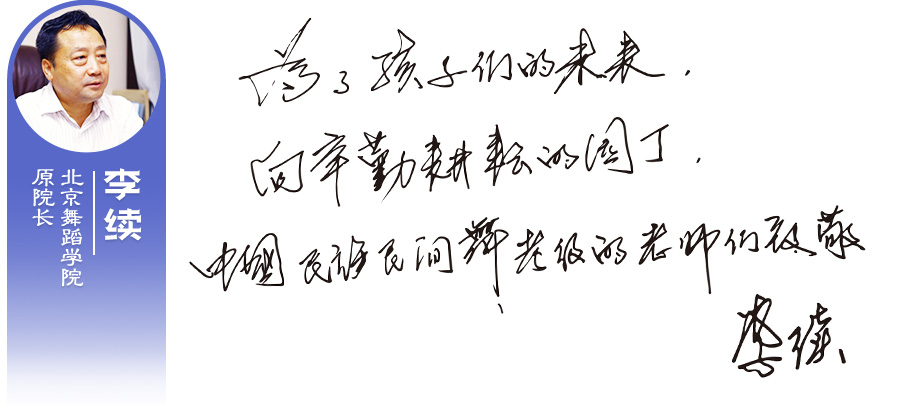 李续
北京舞蹈学院
原院长
为了孩子们的未来，
向辛勤耕耘的园丁，
中国民族民间舞考级的老师们致敬！
李续